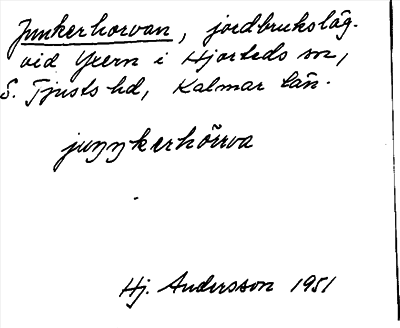 Junkerhorvan, jordbruksläg.
vid Yxern i Hjorteds sn,
S. Tjusts hd, Kalmar län.
juŋŋkerhörrva
Hj. Andersson 1951